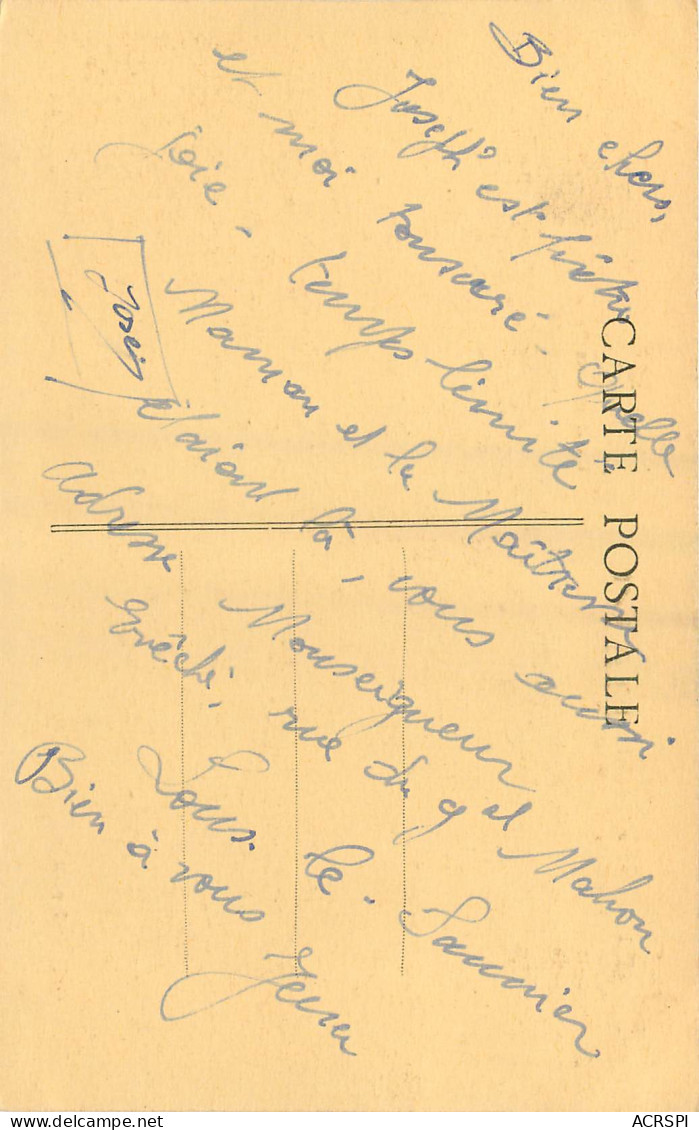 Bien chers,
Joseph est prêtre
et moi tonsuré. Quelle
joie. temps limité
Maman et la Maîtrise
étaient là, vous aussi
Adresse Monseigneur
évêché, rue du gal Mahon
Lons-le-Saunier
Bien à vous Jean
José
CARTE POSTALE
ACRSPI